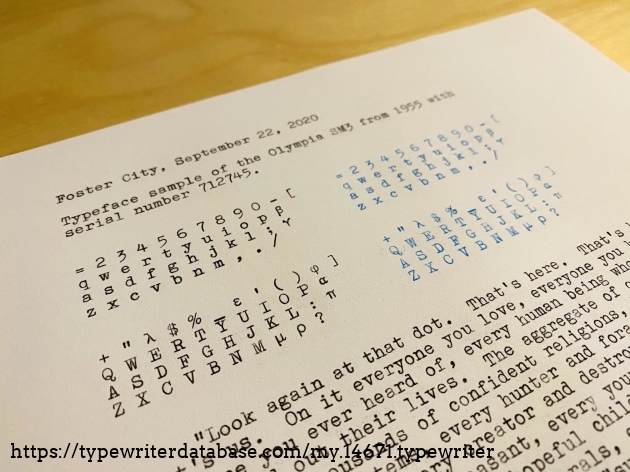 Foster City, September 22, 2020
Typeface sample of the Olympia SM3 from 1955 with
serial number 712745.
= 2 3 4 5 6 7 8 9 0 - [
q w e r t y u i o p β
a s d f g h j k l ; γ
z x c v b n m , . /
+ " λ $ % ε ' ( ) φ ]
Q W E R T Y U I O P α
A S D F G H J K L : π
Z X C V B N M μ ρ ?
= 2 3 4 5 6 7 8 9 0 - [
q w e r t y u i o p β
a s d f g h j k l ; γ
z x c v b n m , . /
+ " λ $ % ε ' ( ) φ ]
Q W E R T Y U I O P α
A S D F G H J K L : π
Z X C V B N M μ ρ ?
"Look again at that dot. That's here. That's
us. On it everyone you love, everyone you
you ever heard of, every human being who
out their lives. The aggregate of
of confident religions,
every hunter and
creator and
every
hopeful
https://typewriterdatabase.com/my.14671.typewriter